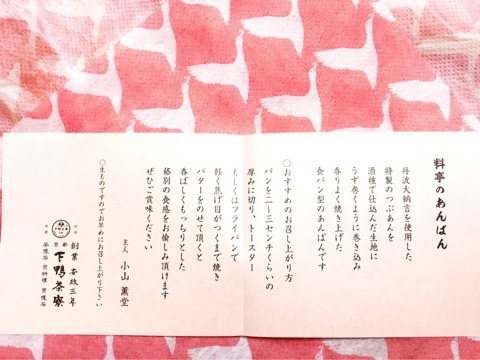 料亭のあんぱん
丹波大納言を使用した
特製のつぶあんを
酒種で仕込んだ生地に
うず巻くように巻き込み
香りよく焼き上げた
食パン型のあんぱんです
○おすすめのお召し上がり方
パンを二〜三センチくらいの
厚みに切り、トースター
もしくはフライパンで
軽く焦げ目がつくまで焼き
バターをのせて頂くと
香ばしくもっちりとした
格別の食感をお愉しみ頂けます
ぜひご賞味ください
主人 小山 薫堂
○生ものですのでお早めにお召し上がり下さい
創業 安政三年
下鴨茶寮